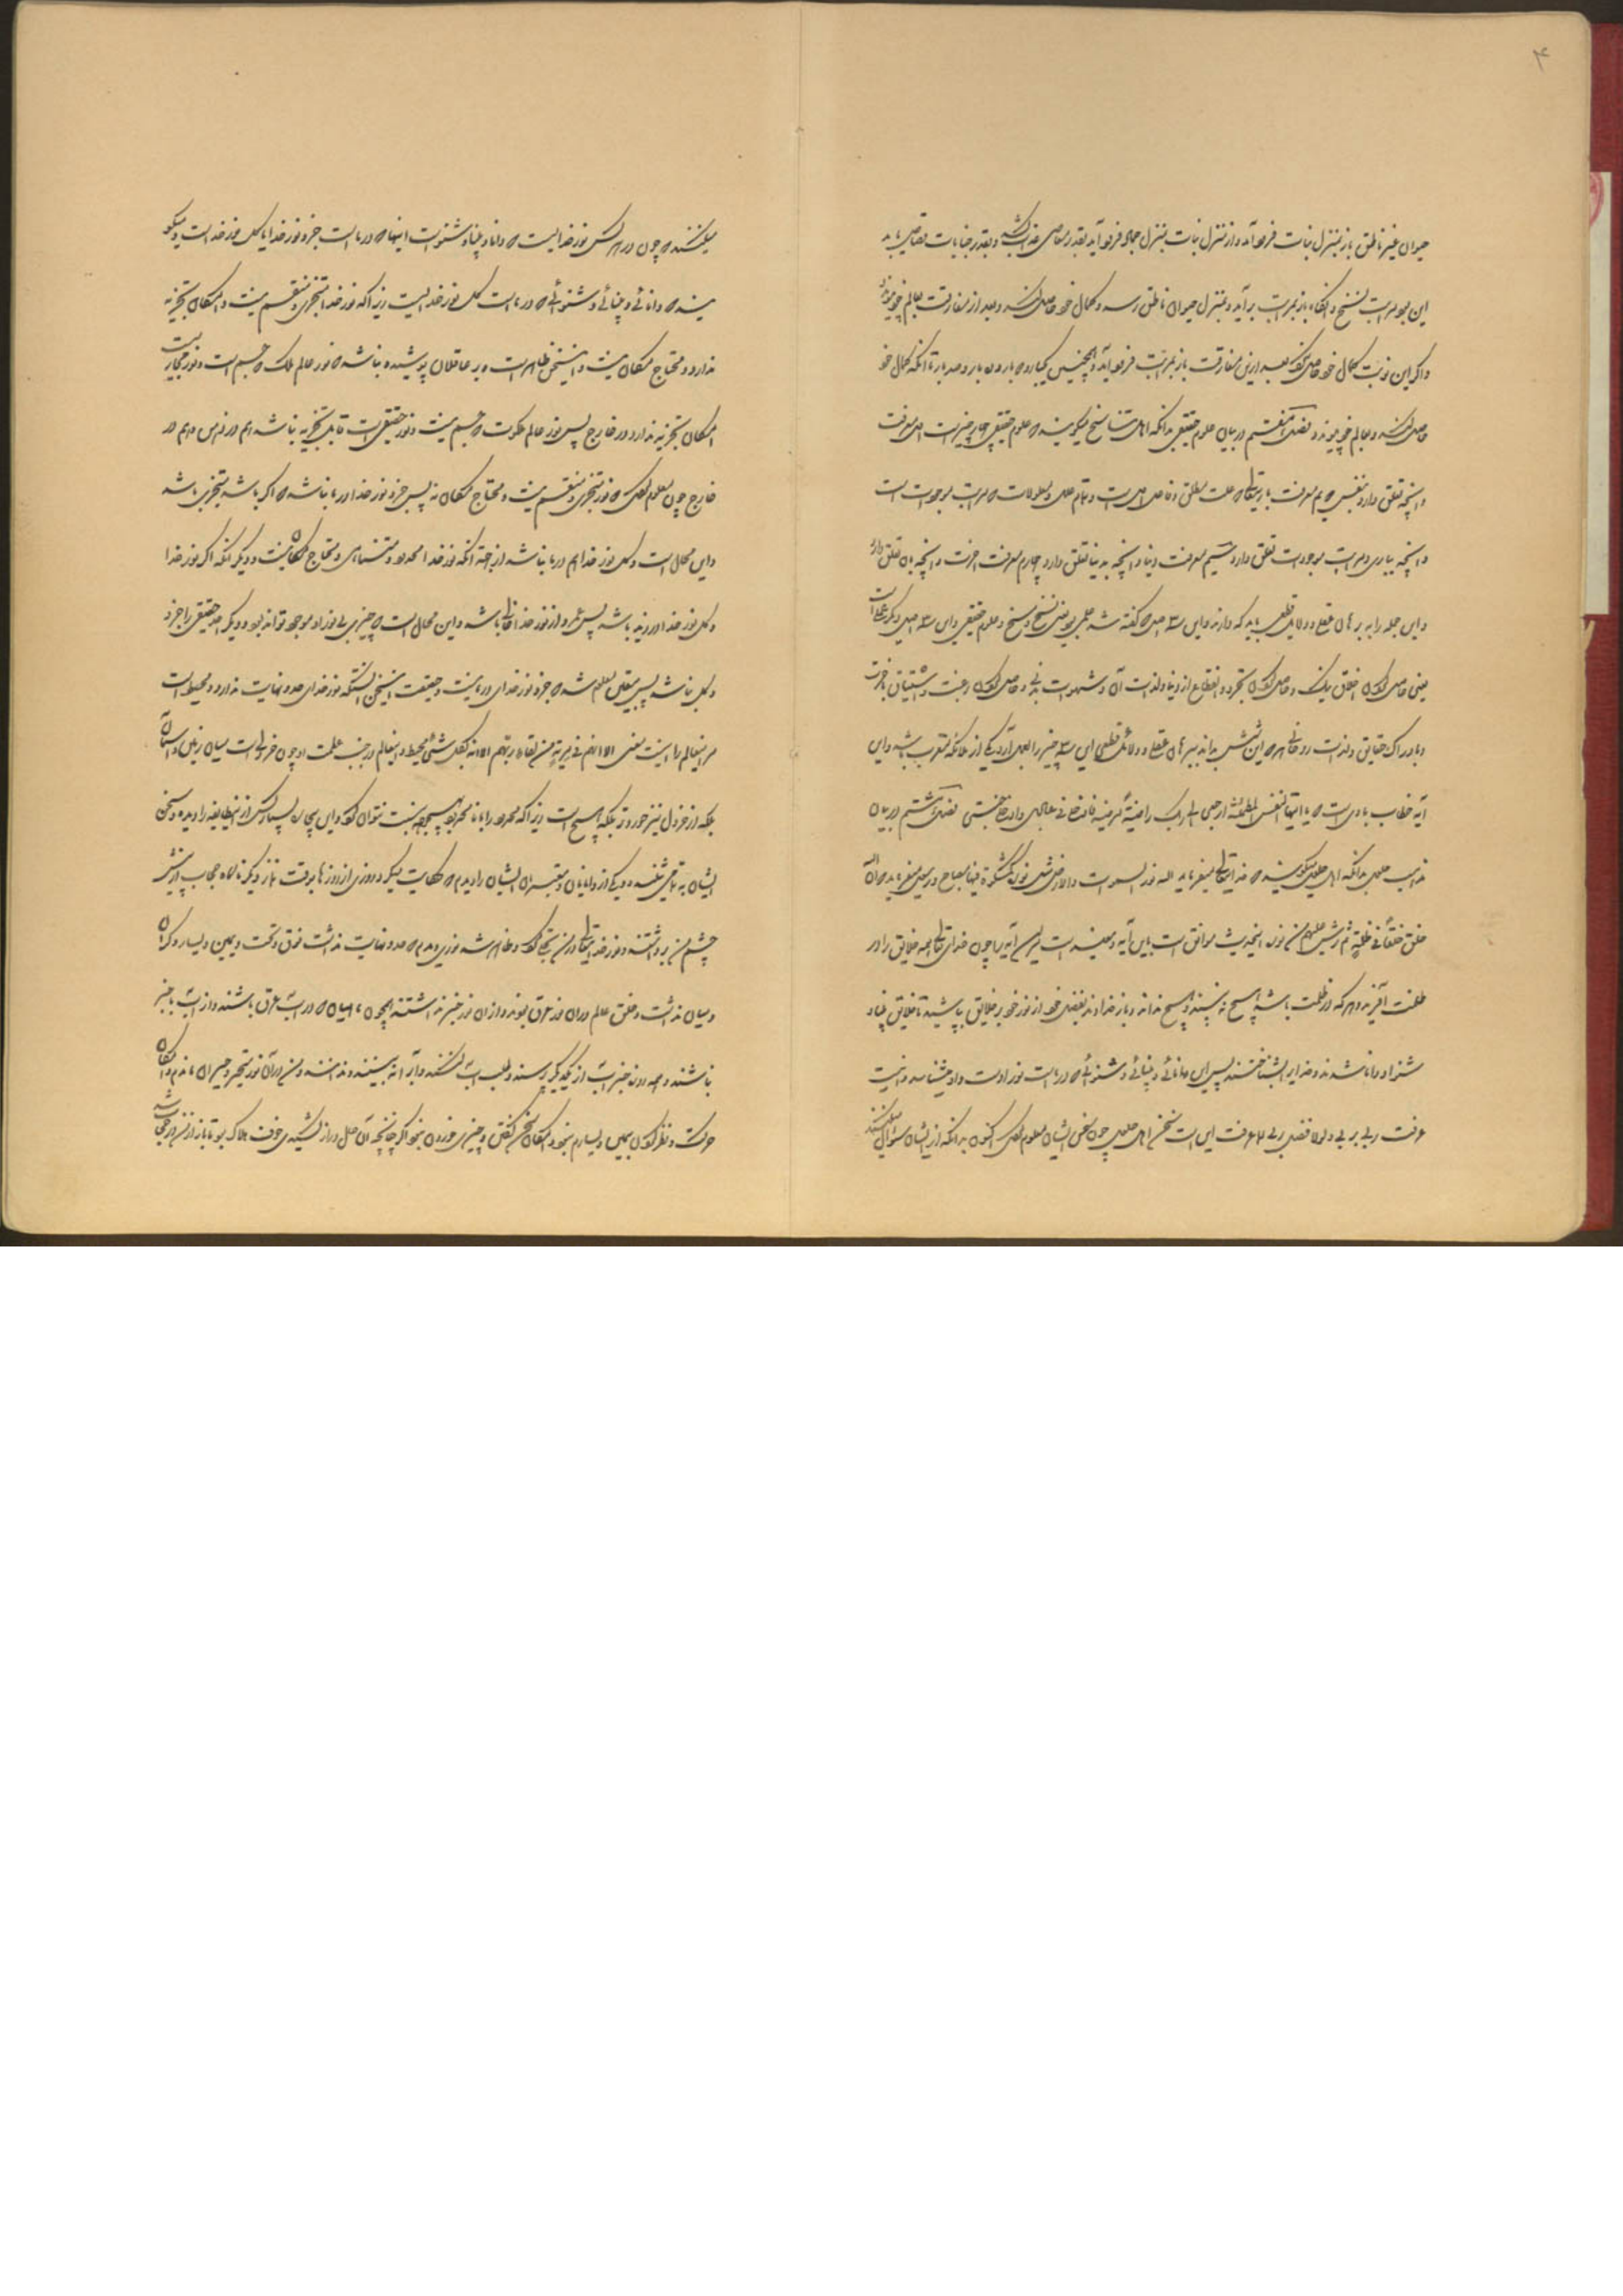 ۴
حیوان غیر ناطق باز بمنزل نبات فرود آید و از منزل نبات بمنزل جماد فرود آید بقدر معاصی عذاب کشد و بقدر جنایات قصاص یابد
این بود مراتب نسخ و آنگاه باز بمراتب برآید و بمنزل حیوان ناطق رسد و کمال خود حاصل کند و بعد از مفارقت بعالم خود پیوندد
و اگر این نوبت کمال خود حاصل نکند بعد ازین مفارقت باز بمراتب فرود آید و همچنین یکبار و ده بار و صد بار تا آنگه کمال خود
حاصل کند و بعالم خود پیوندد فصل هفتم در بیان علوم حقیقی بدانکه اهل تناسخ میگویند که علوم حقیقی چهار چیز است اول معرفت
و آنچه تعلق دارد بنفس دویم معرفت باریتعالی که علت مطلق و فاعل اول است و تمام علل و معلولات که مراتب موجودات است
و آنچه بباری و مراتب موجودات تعلق دارد سیم معرفت دنیا و آنچه بدنیا تعلق دارد چهارم معرفت آخرت و آنچه بآن تعلق دارد
و این جمله را به برهان عقلی و دلایل قطعی باید که دارند و این سه اصل که گفته شد علمی بود یعنی نسخ و مسخ و علوم حقیقی و این سه اصل دیگر عملی است
یعنی حاصل کردن اخلاق نیک و حاصل کردن تجرد و انقطاع از دنیا و لذات آن و شهوات بدنی و حاصل کردن رغبت و اشتیاق بآخرت
و بادراک حقایق و لذات روحانی هر که این شش بداند ببرهان عقلی و دلائل قطعی این سه چیز را بعمل آرد یکی از ملائکه مقرب باشد و این
آیه خطاب با وی است که یا ایتها النفس المطمئنه ارجعی الی ربک راضیة مرضیه فادخلی فی عبادی وادخلی جنتی فصل هشتم در بیان
مذهب حلول بدانکه اهل حلول میگویند که خدایتعالی میفرماید الله نور السموات والارض مثل نوره کمشکوة فیها مصباح و رسول میفرماید ان الله
خلق خلقا فی ظلمة ثم رش علیهم من نوره اینحدیث موافق است باین آیه و مفسر است مر این آیه را چون خدای تعالی همه خلایق را در
ظلمت آفرید و هر که در ظلمت باشد هیچ نه بیند و هیچ نداند و باز خداوند بفضل خود از نور خود بر خلایق بپاشید تا خلایق بینا و
شنوا و دانا شدند و خدایرا بشناختند پس این دانائی و بینائی و شنوائی که در ماست نور اوست و او شناسد و دانست
عرفت ربی بربی و لولا فضل ربی ما عرفت این است سخن اهل حلول چون سخن ایشان معلوم کردی اکنون بدانکه از ایشان سؤال میکنند
میکنند که چون در هر کس نور خداییست که دانا و بینا و شنوا است اینها که در ماست جزو نور خدا یا کل نور خداست و میگو
یند که دانائی و بینائی و شنوائی که در ماست کل نور خدا نیست زیرا که نور خدا متجزی و منقسم نیست و امکان تجزیه
ندارد و محتاج مکان نیست و این سخن ظاهر است و بر عاقلان پوشیده نباشد که نور عالم ملک که جسم است و نور مجازیست
امکان تجزیه ندارد در خارج پس نور عالم ملکوت که جسم نیست و نور حقیقی است قابل تجزیه نباشد هم در ذهن و هم در
خارج چون معلوم کردی که نور متجزی و منقسم نیست و محتاج مکان نه پس جزو نور خدا در ما نباشد که اگر باشد متجزی باشد
و این محال است و کل نور خدا هم در ما نباشد از جهت آنکه نور خدا محدود و متناهی و محتاج مکان نیست و دیگر آنکه اگر نور خدا
و کل نور خدا در زید باشد پس عمرو از نور خدا خالی باشد و این محال است که چیزی بی نور او موجود تواند بود و دیگر احد حقیقی را جزو
و کل نباشد پس بیقین معلوم شد که جزو نور خدای در ما نیست و حقیقت این سخن آنستکه نور خدای حد و نهایت ندارد و محیط است
مر اینعالم را اینست معنی الا انهم فی مریة من لقاء ربهم الا انه بکل شئ محیط و اینعالم در جنب عظمت او چون خردلی است میان زمین و آسمان
بلکه از خردل نیز خوردتر بلکه هیچ است زیرا که محدود را با نا محدود بهیچوجه نسبت نتوان کرد و این بیچاره بسیار کس از این طایفه را دیده و سخن
ایشان به تمامی شنیده و یکی از دانایان و معتبران ایشان را دیدم که حکایت میکرد روزی از روزها بوقت نماز دیگر ناگاه حجاب از پیش
چشم من برداشتند و نور خدایتعالی بر من تجلی کرد و ظاهر شد نوری دیدم که حد و نهایت نداشت فوق و تحت و یمین و یسار و کران
و میان نداشت و خلق عالم در آن نور غرق بودند و از آن نور خبر نداشتند همچون ماهیان که در آب غرق باشند و از آب بیخبر
باشند و همواره خبر آب از یکدیگر پرسند و طلب آب کنند و آب را نه بینند و ندانند و من در آن نور متحیر و حیران ماندم و امکان
حرکت و نظر کردن بیمین و یسارم نبود و امکان سخن گفتن و چیزی خوردن نبود اگر چنانچه آن حال دراز کشیدی خوف هلاک بود تا باز از من در حجاب شد